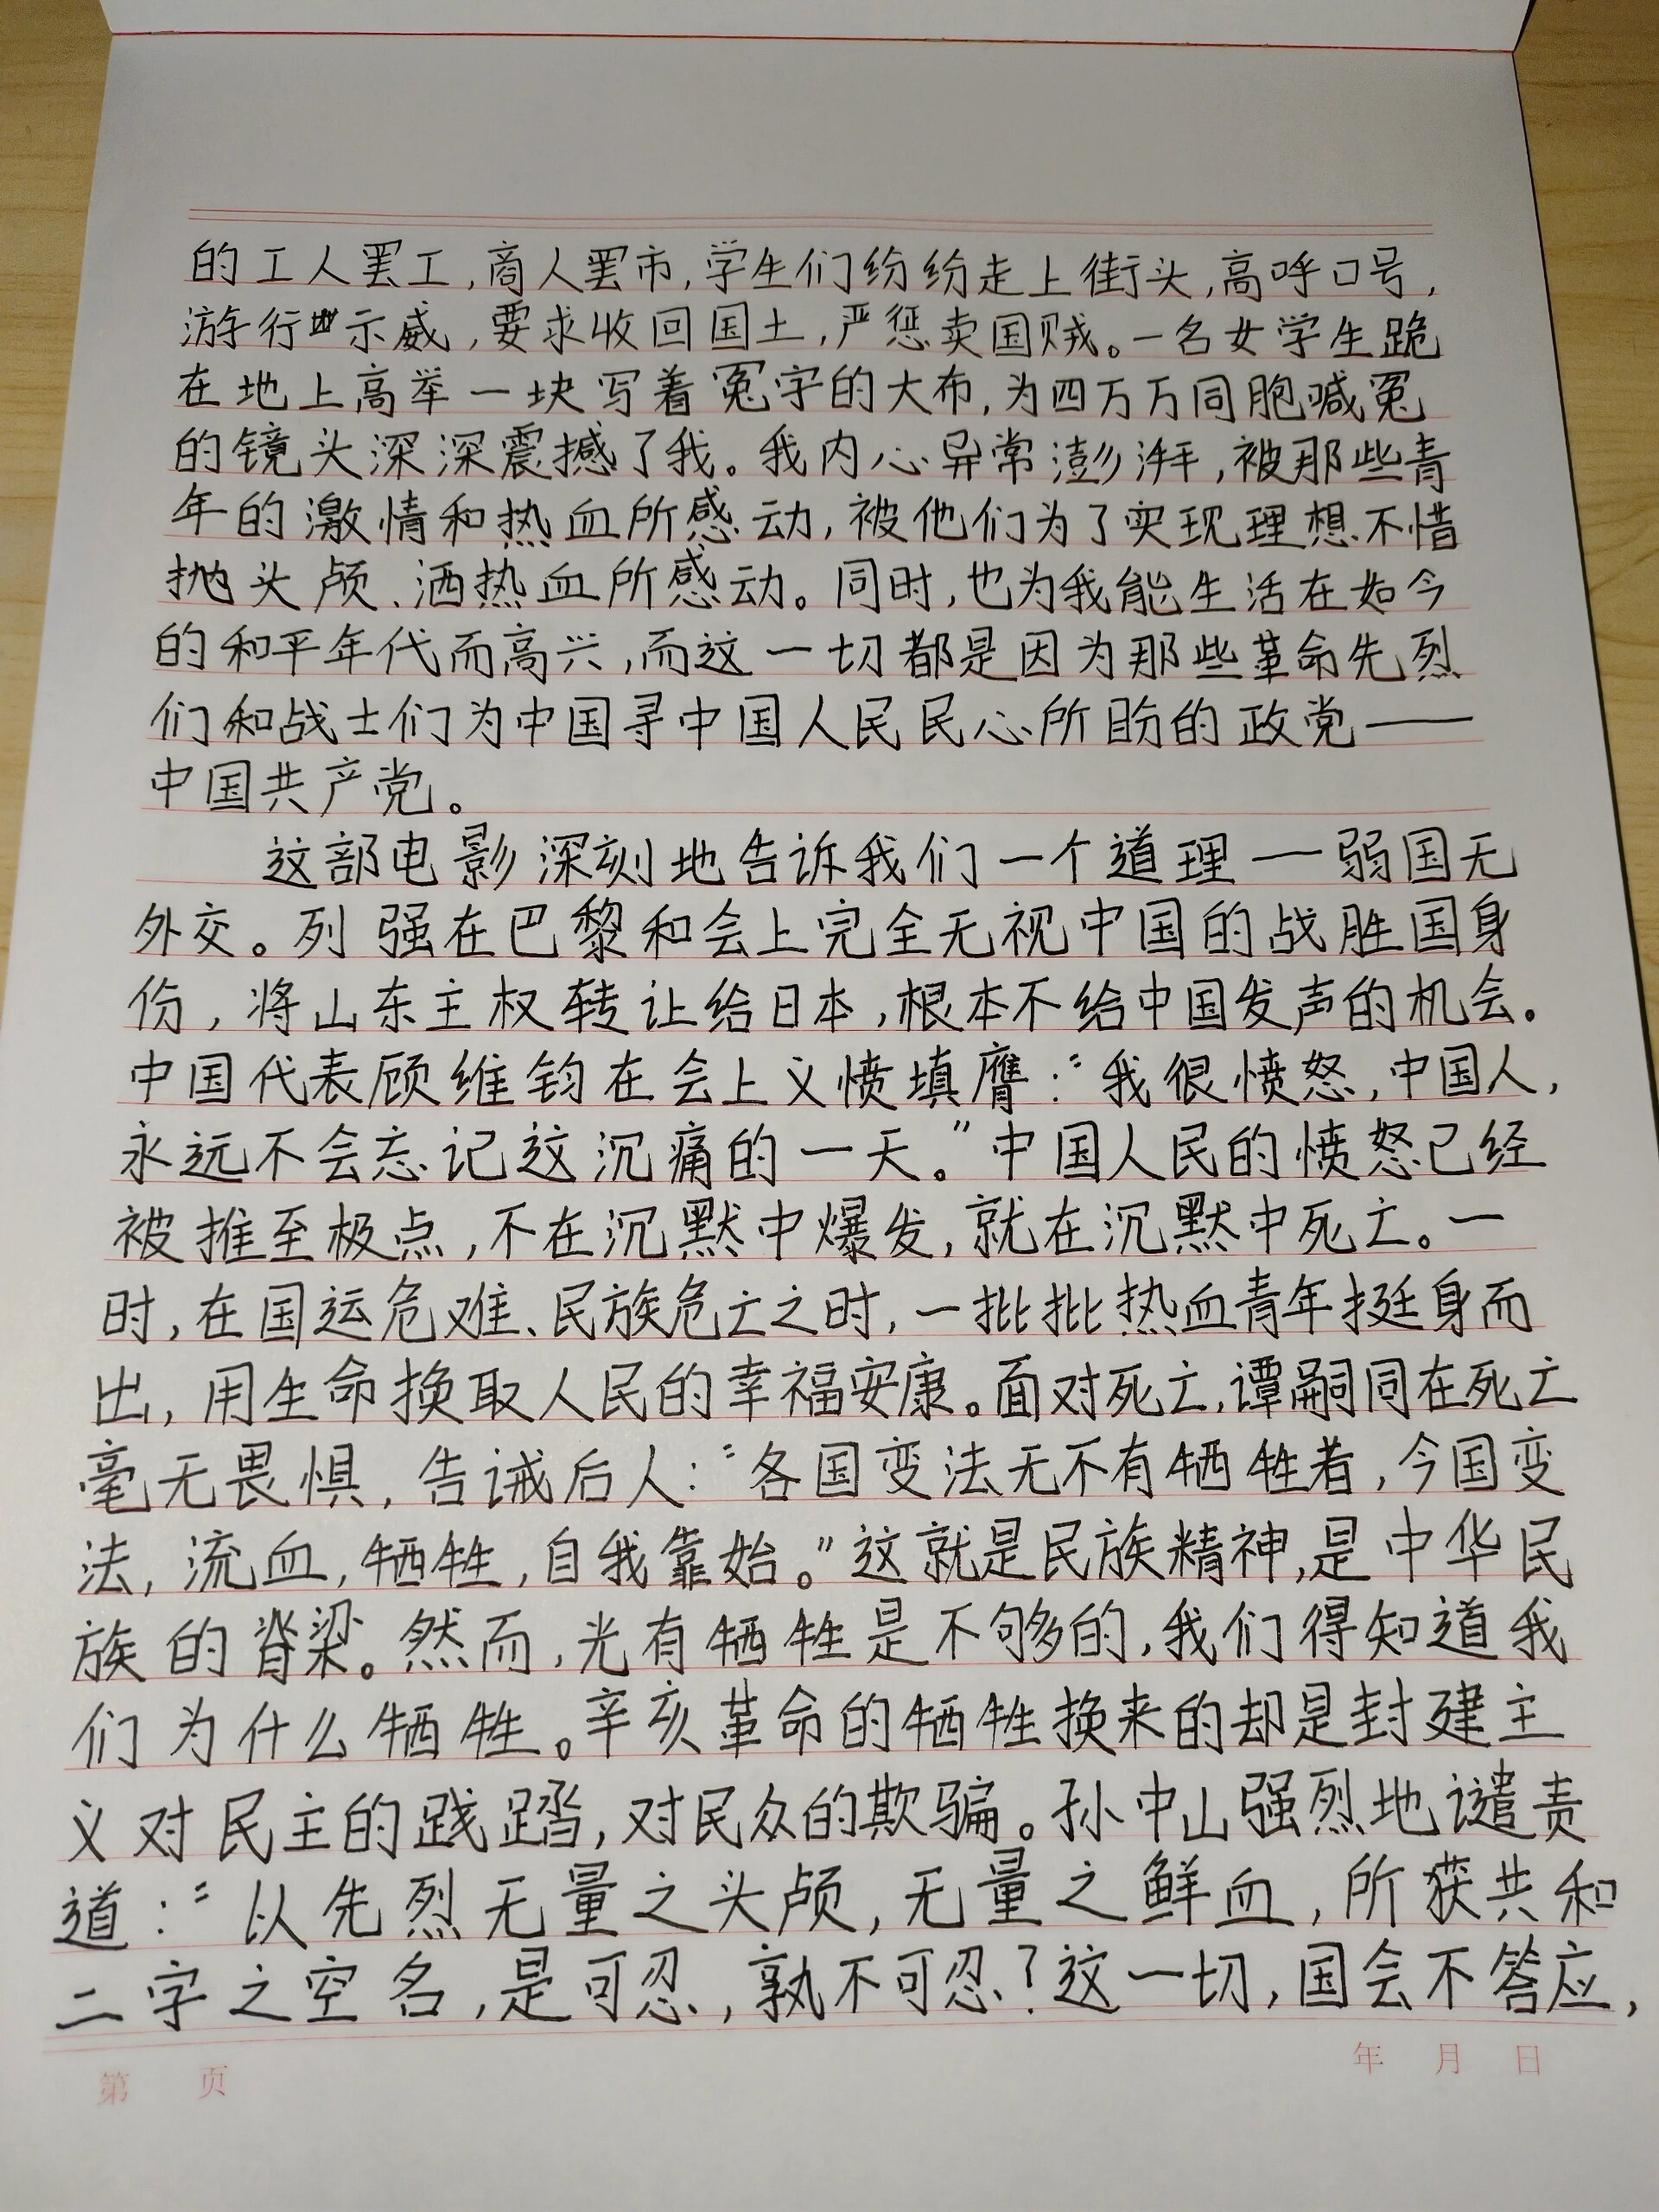 的工人罢工,商人罢市,学生们纷纷走上街头,高呼口号,
游行示威,要求收回国土,严惩卖国贼。一名女学生跪
在地上高举一块写着冤字的大布,为四万万同胞喊冤
的镜头深深震撼了我。我内心异常澎湃,被那些青
年的激情和热血所感动,被他们为了实现理想不惜
抛头颅、洒热血所感动。同时,也为我能生活在如今
的和平年代而高兴,而这一切都是因为那些革命先烈
们和战士们为中国寻中国人民民心所盼的政党——
中国共产党。
这部电影深刻地告诉我们一个道理——弱国无
外交。列强在巴黎和会上完全无视中国的战胜国身
份,将山东主权转让给日本,根本不给中国发声的机会。
中国代表顾维钧在会上义愤填膺:“我很愤怒,中国人,
永远不会忘记这沉痛的一天。”中国人民的愤怒已经
被推至极点,不在沉默中爆发,就在沉默中死亡。一
时,在国运危难、民族危亡之时,一批批热血青年挺身而
出,用生命换取人民的幸福安康。面对死亡,谭嗣同在死亡
毫无畏惧,告诫后人:“各国变法无不有牺牲者,今国变
法,流血,牺牲,自我靠始。”这就是民族精神,是中华民
族的脊梁。然而,光有牺牲是不够的,我们得知道我
们为什么牺牲。辛亥革命的牺牲换来的却是封建主
义对民主的践踏,对民众的欺骗。孙中山强烈地谴责
道:“以先烈无量之头颅,无量之鲜血,所获共和
二字之空名,是可忍,孰不可忍?这一切,国会不答应,
第 页 年 月 日